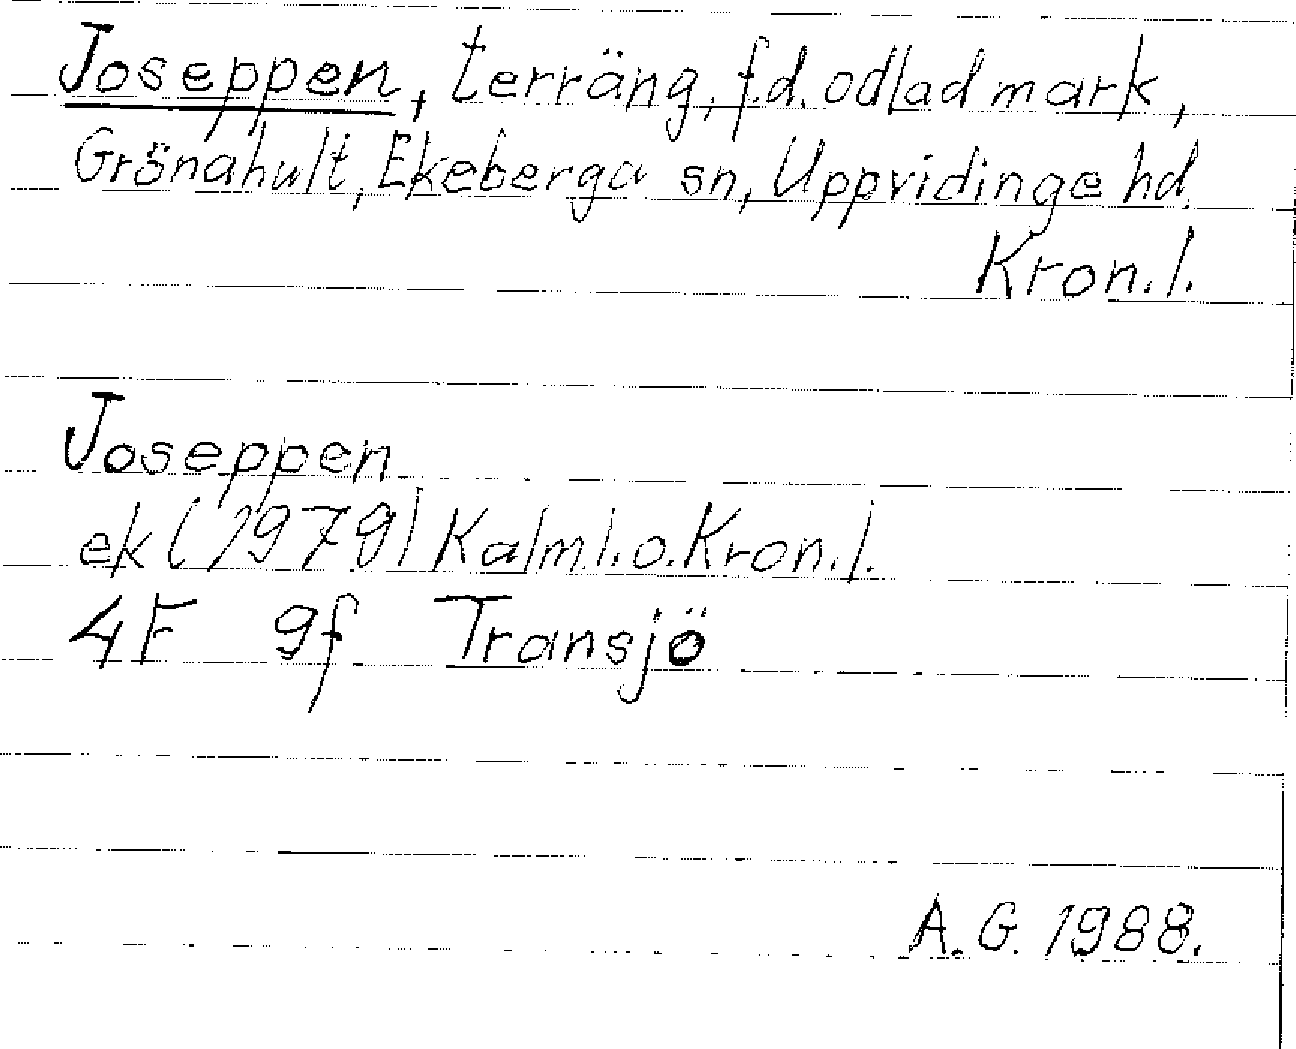 Joseppen, terräng, f.d. odlad mark,
Grönahult, Ekeberga sn, Uppvidinge hd.
Kron.l.
Joseppen
ek (1979) Kalm l. o. Kron. l.
4F 9f Transjö
A.G. 1988.